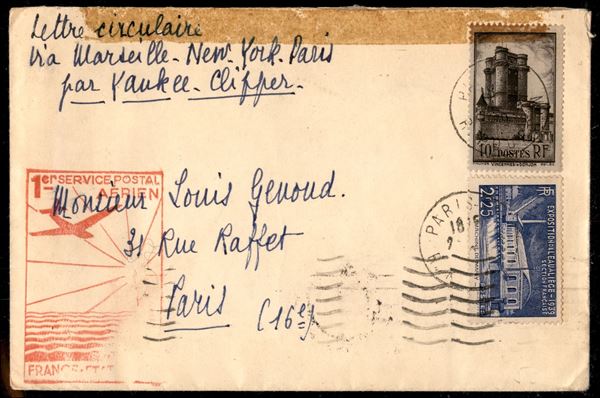 Lettre circulaire
via Marseille-New-York-Paris
par Yankee-Clipper-
10F POSTES RF
VINCENNES-DONJON
1er SERVICE POSTAL
AÉRIEN
Monsieur Louis Genoud.
31 Rue Raffet
Paris
(16e)
FRANCE-ETAT
PARIS
18
RF
2,25
EXPOSITION DE L'EAU A LIEGE-1939
SECTION FRANÇAISE